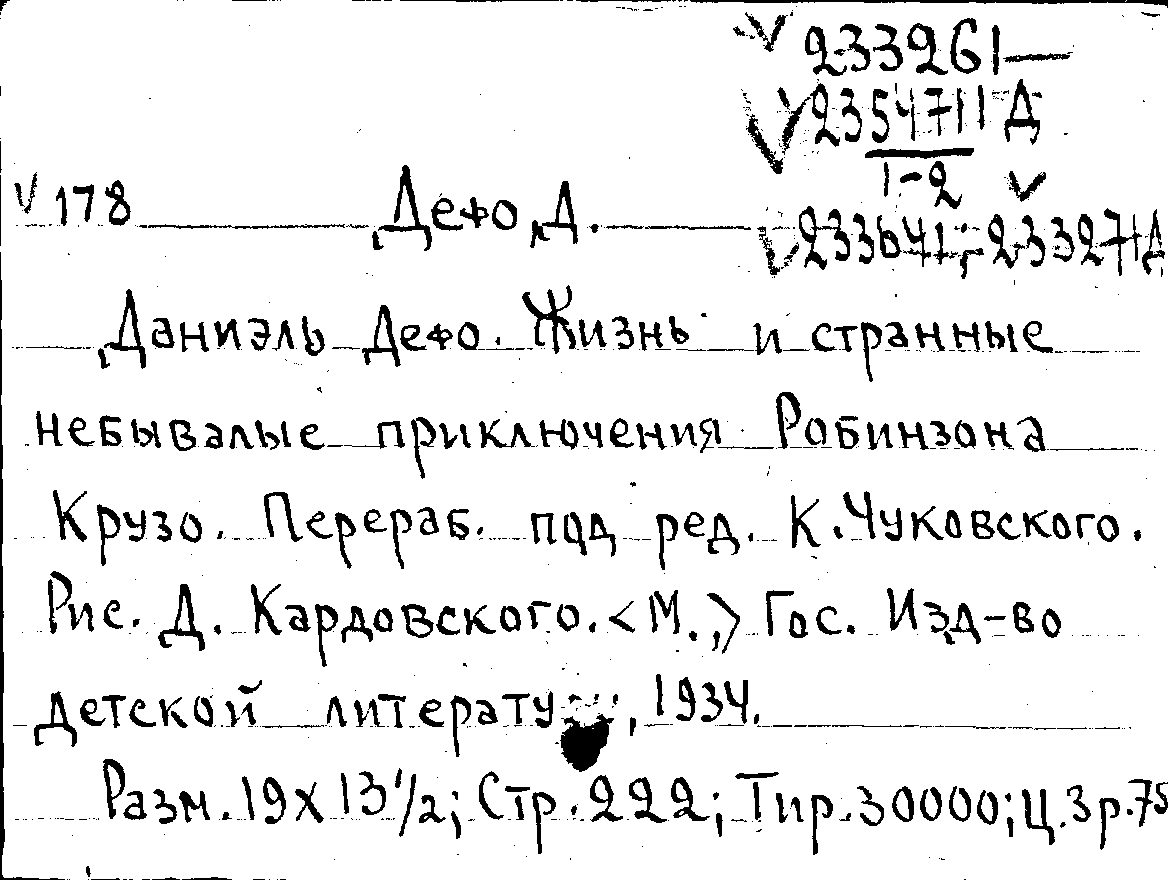 233261—
235471 Д
1-2
178 Дефо, Д. 233641; 233271Д
Даниэль Дефо. Жизнь и странные
небывалые приключения Робинзона
Крузо. Перераб. под ред. К. Чуковского.
Рис. Д. Кардовского. <М.,> Гос. Изд-во
детской литературы, 1934.
Разм. 19x13 1/2; Стр. 222; Тир. 30000; Ц. 3 р. 75